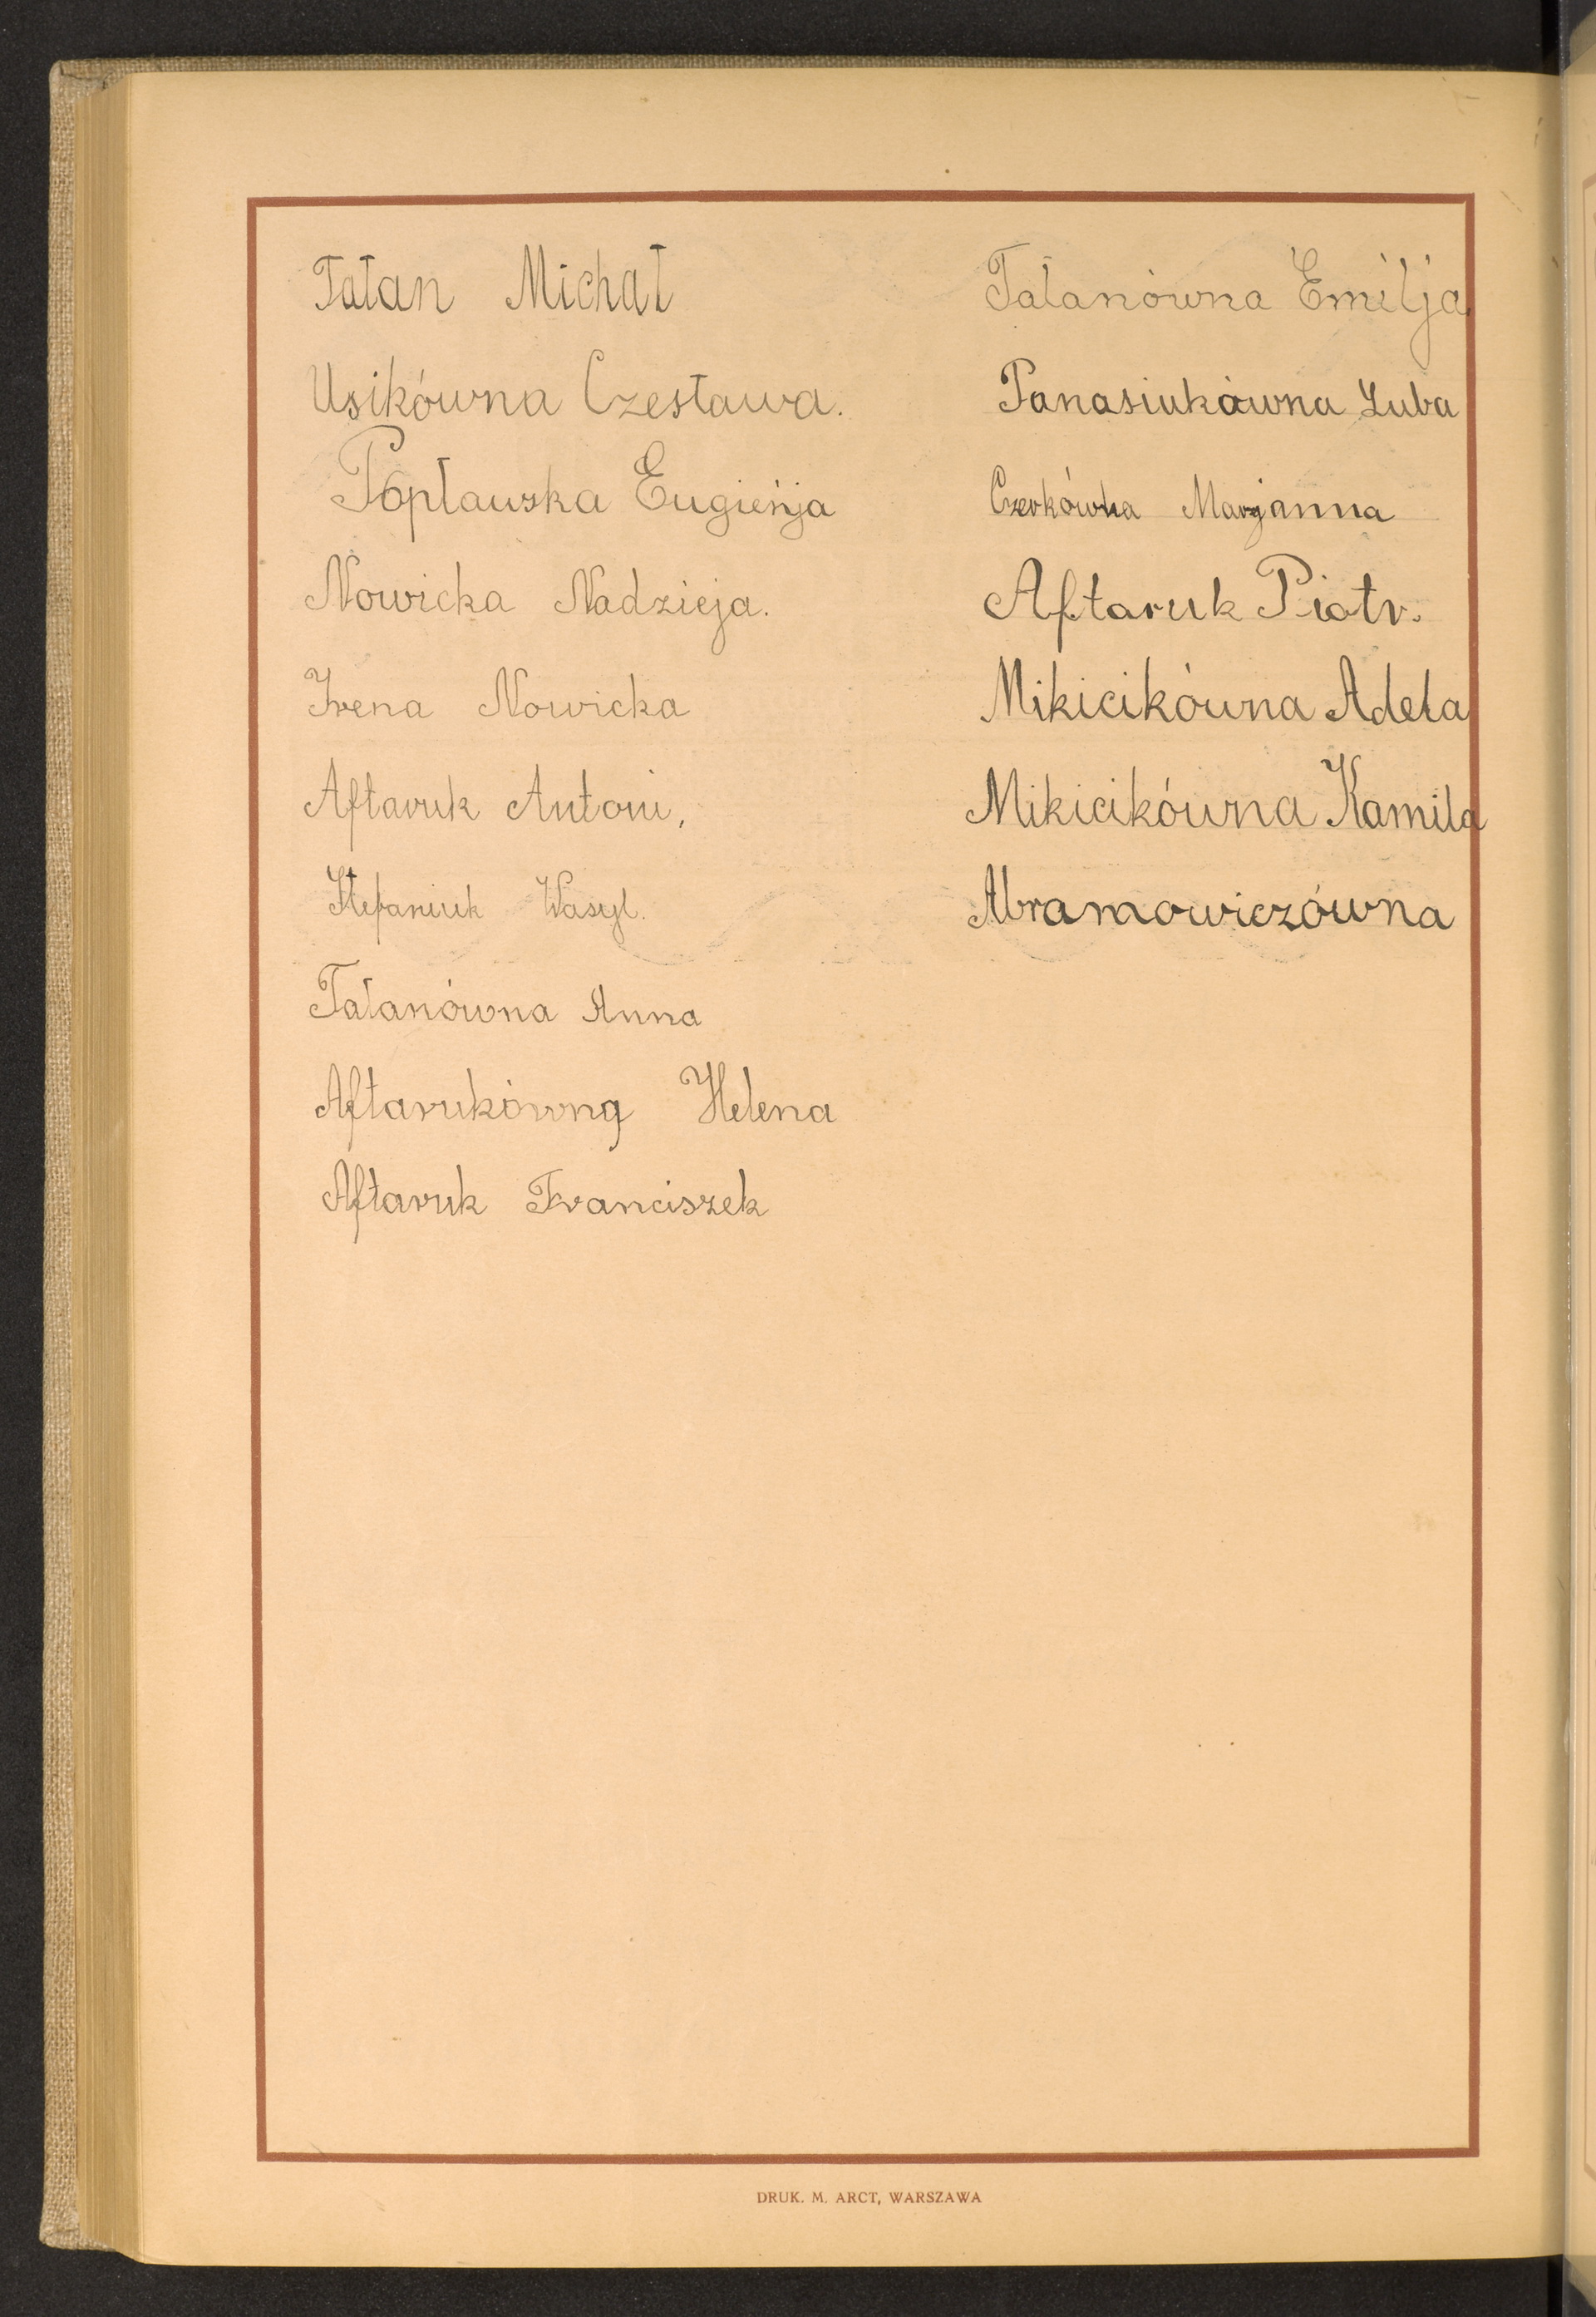 Tałan Michał
Usikówna Czesława.
Popławska Eugienja
Nowicka Nadzieja.
Irena Nowicka
Aftaruk Antoni,
Stefaniuk Wasyl.
Tałanówna Anna
Aftarukówna Helena
Aftaruk Franciszek
Tałanówna Emilja
Panasiukówna Luba
Czerkówna Marjanna
Aftaruk Piotr.
Mikicikówna Adela
Mikicikówna Kamila
Abramowiczówna
DRUK. M. ARCT, WARSZAWA